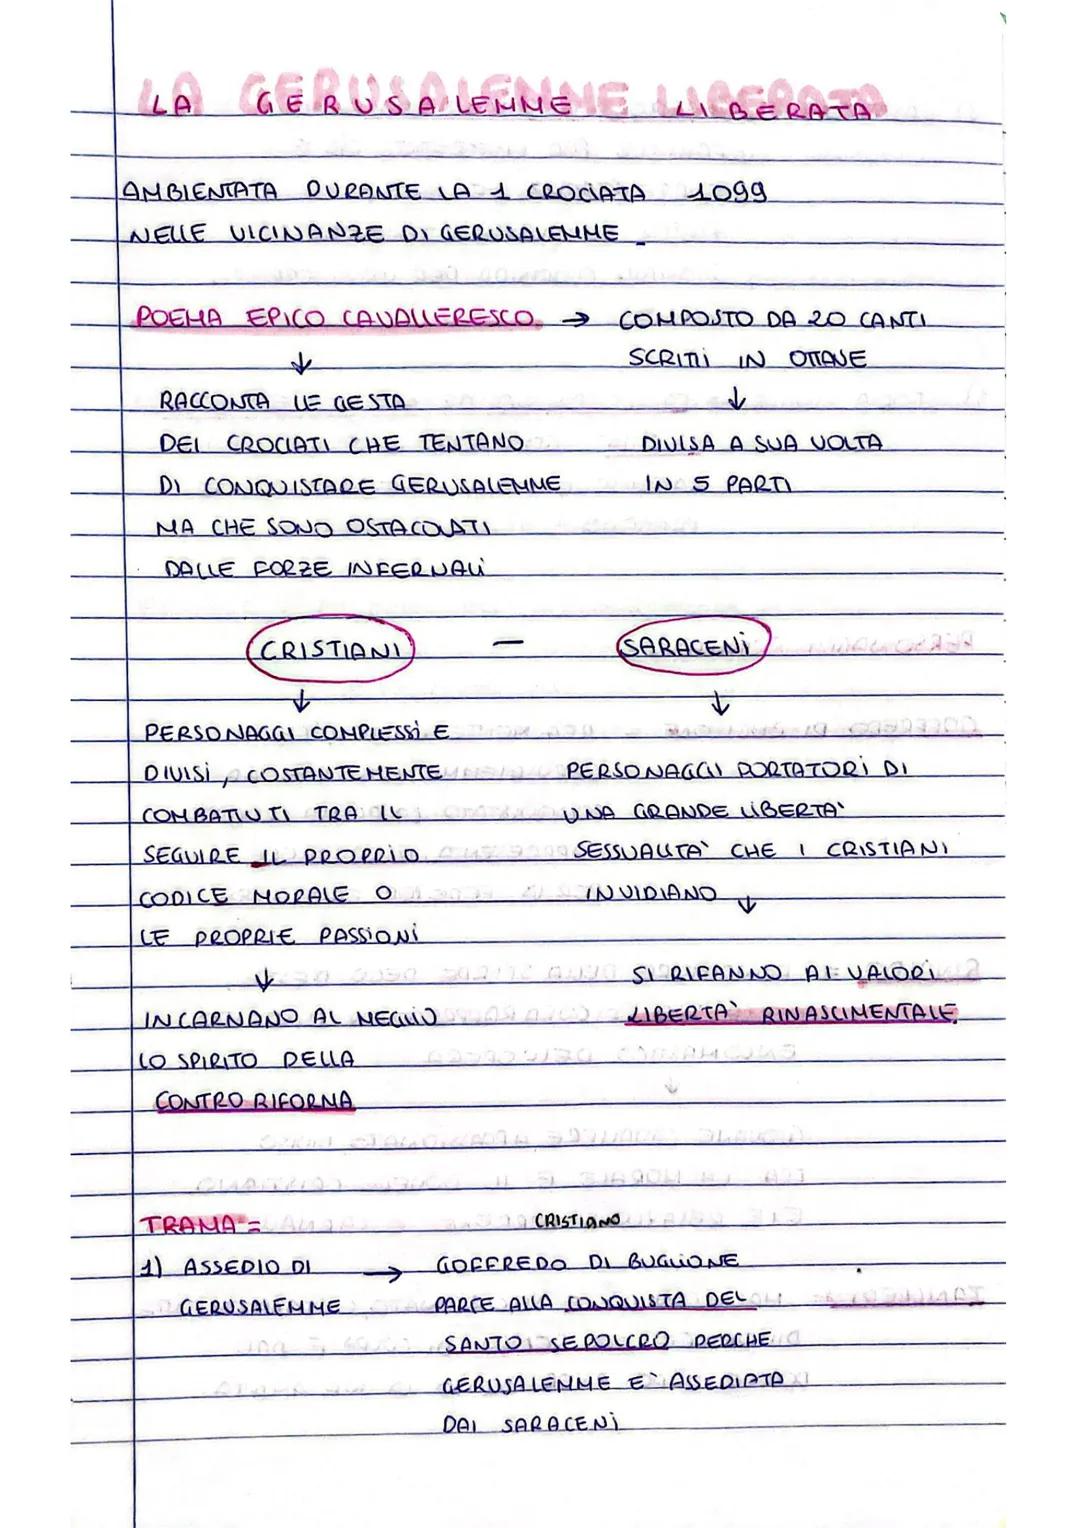 LA GERUSALEMME LIBERATA
AMBIENTATA DURANTE LA 1 CROCIATA 1099
NELLE VICINANZE DI GERUSALEMME
POEMA EPICO CAVALLERESCO → COMPOSTO DA 20 CANTI
SCRITTI IN OTTAVE
↓
RACCONTA LE GESTA
DEI CROCIATI CHE TENTANO
DI CONQUISTARE GERUSALEMME
MA CHE SONO OSTACOLATI
DALLE FORZE INFERNALI
↓
DIVISA A SUA VOLTA
IN 5 PARTI
CRISTIANI - SARACENI
↓
PERSONAGGI COMPLESSI E
DIVISI, COSTANTEMENTE
COMBATTUTI TRA IL
SEGUIRE IL PROPRIO
CODICE MORALE O
LE PROPRIE PASSIONI
↓
INCARNANO AL MEGLIO
LO SPIRITO DELLA
CONTRO RIFORMA
↓
PERSONAGGI PORTATORI DI
UNA GRANDE LIBERTA'
SESSUALITA' CHE I CRISTIANI
INVIDIANO ↓
SI RIFANNO AI VALORI
LIBERTA' RINASCIMENTALE
TRAMA =
1) ASSEDIO DI
GERUSALEMME
→
CRISTIANO
GOFFREDO DI BUGLIONE
PARTE ALLA CONQUISTA DEL
SANTO SEPOLCRO PERCHE
GERUSALEMME E' ASSEDIATA
DAI SARACENI